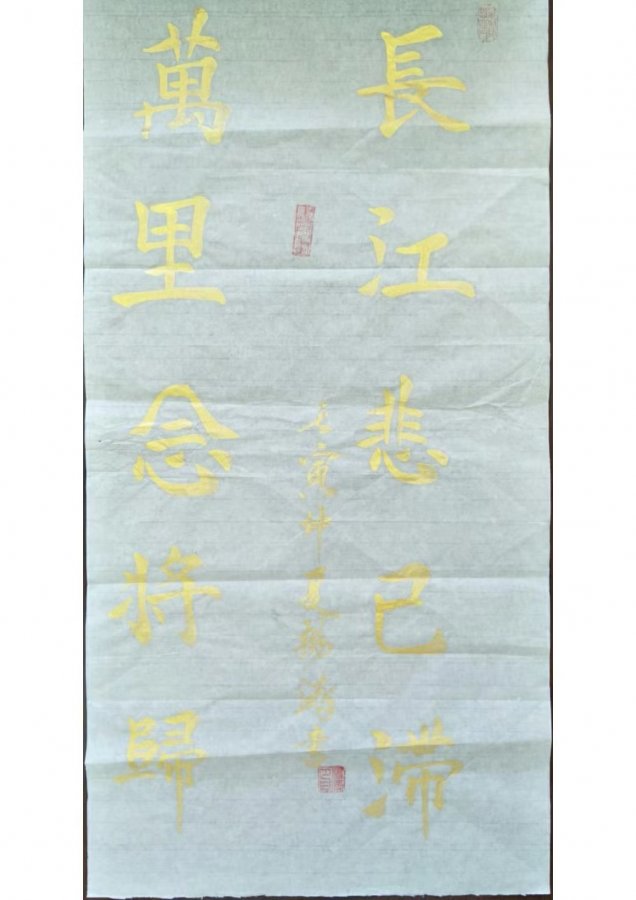 長江悲已滯
萬里念將歸
壬寅仲夏
書